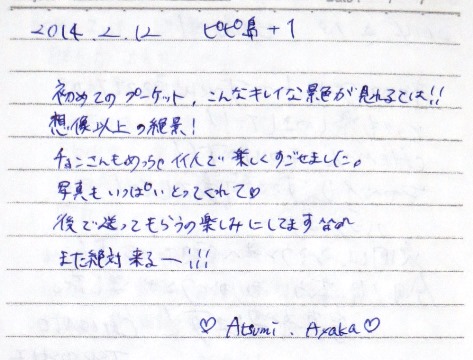 2014.2.12 ピピ島+1
初めてのプーケット、こんなキレイな景色が見れるとは!!
想像以上の絶景!
チョンさんもめっちゃイイ人で楽しくすごせました。
写真もいっぱいとってくれて♡
後で送ってもらうの楽しみにしてます
また絶対来るー!!!
♡ Atsumi. Ayaka ♡